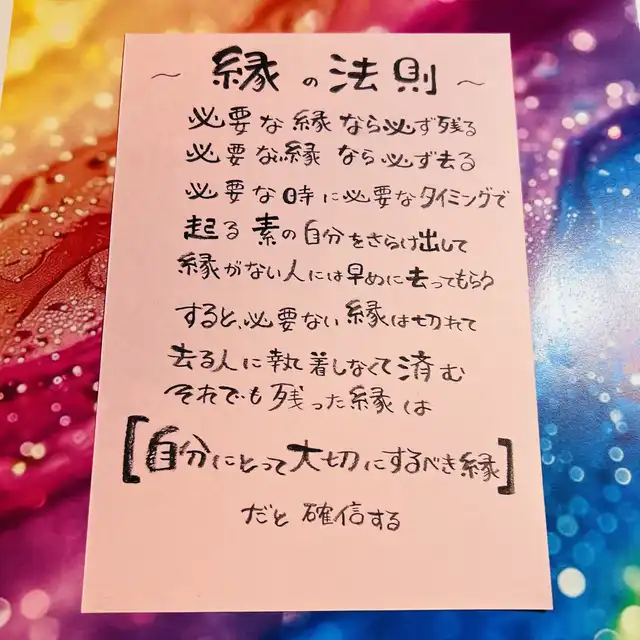 ～ 縁の法則 ～
必要な縁なら必ず残る
必要な縁なら必ず去る
必要な時に必要なタイミングで
起る 素の自分をさらけ出して
縁がない人には早めに去ってもらう
すると、必要ない縁は切れて
去る人に執着しなくて済む
それでも残った縁は
[自分にとって大切にするべき縁]
だと確信する